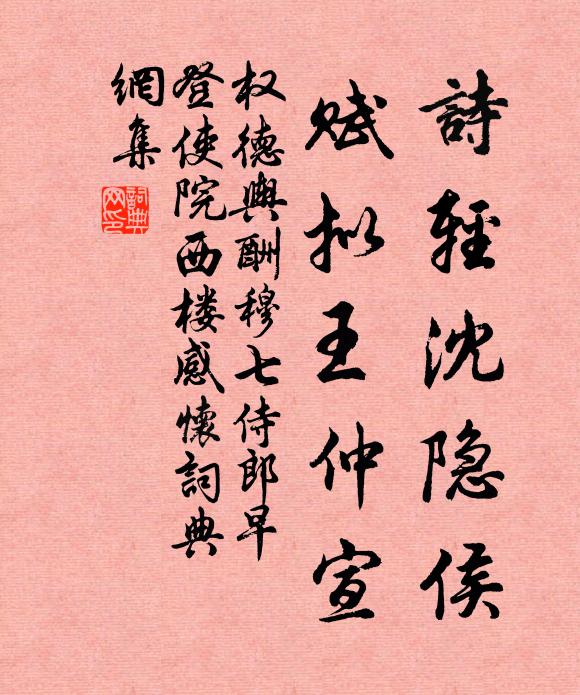 詩輕沈隐侯
赋拟王仲宣
权德輿酬穆七侍郎早
登使院西楼感懷詞典
網集
詞典
网印